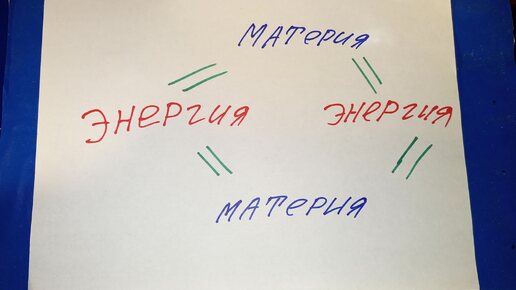 МАТЕРИЯ
ЭНЕРГИЯ ЭНЕРГИЯ
МАТЕРИЯ